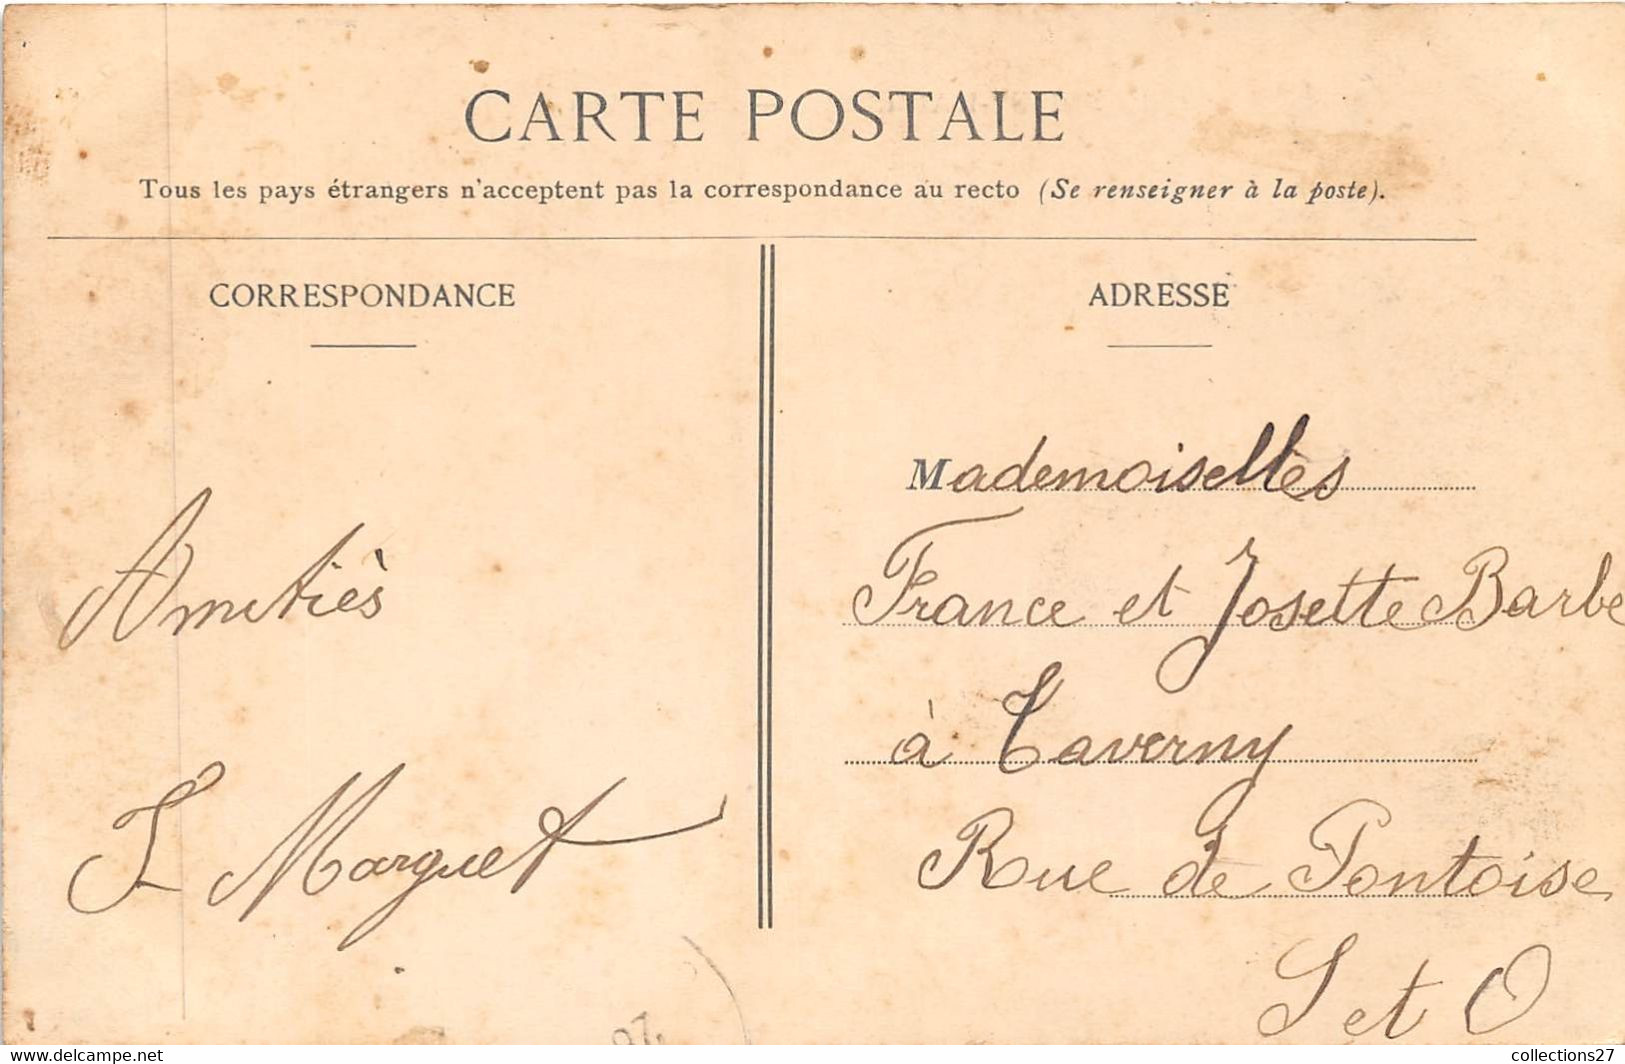 CARTE POSTALE
Tous les pays étrangers n'acceptent pas la correspondance au recto (Se renseigner à la poste).
CORRESPONDANCE
Amitiès
S Marguet
ADRESSE
Mademoiselles
France et Josette Barbe
à Taverny
Rue de Pontoise
S et O
collections27
www.delcampe.net